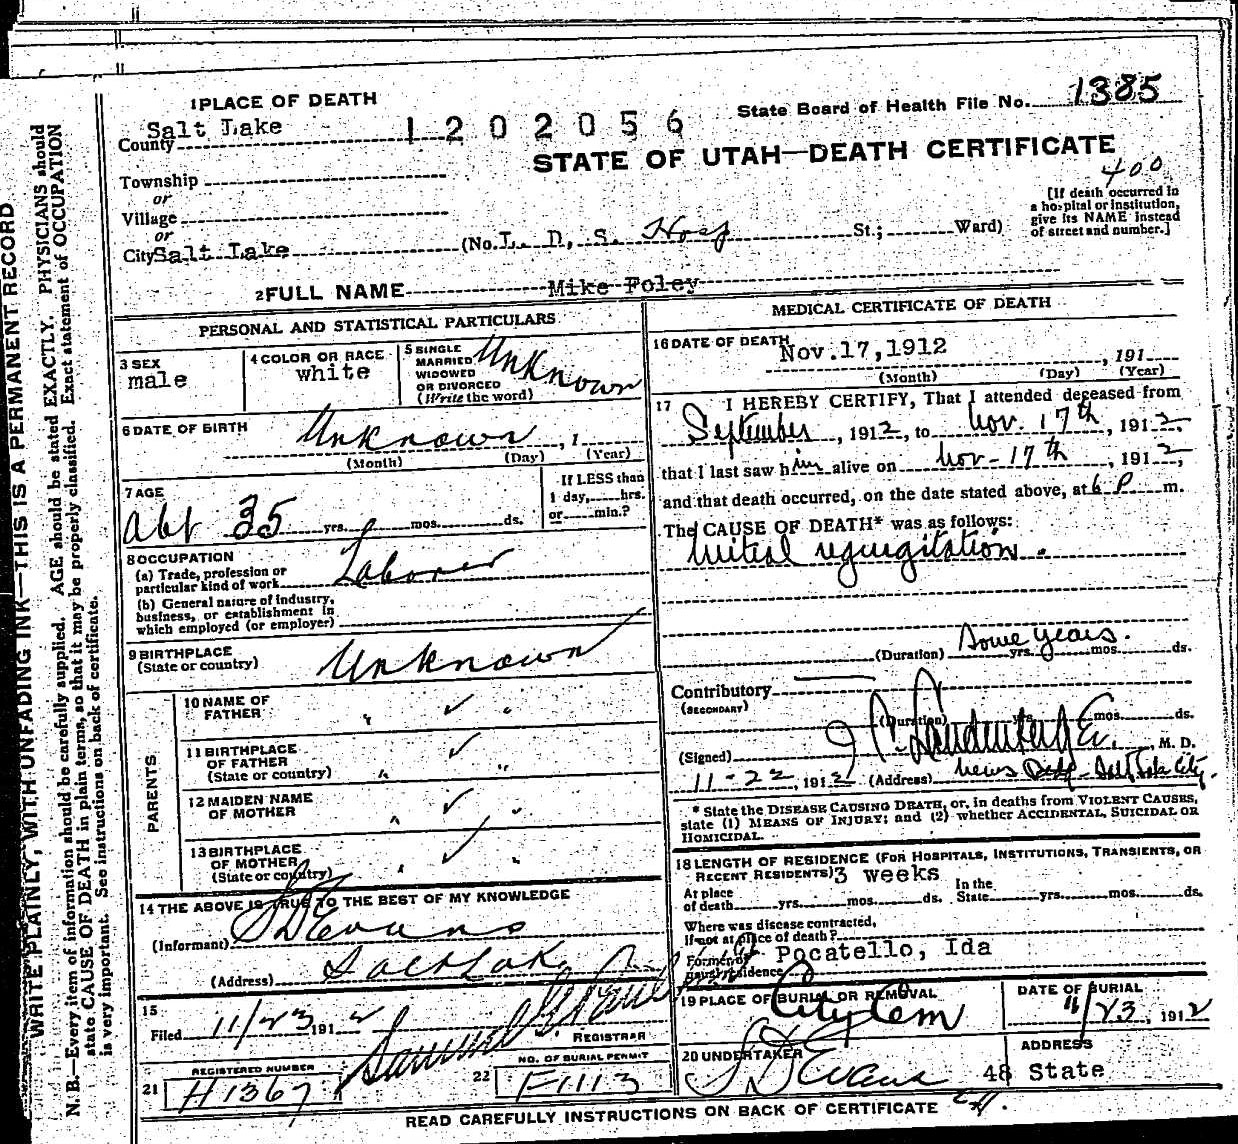 1 PLACE OF DEATH
State Board of Health File No. 1385
County Salt Lake
1202056
STATE OF UTAH—DEATH CERTIFICATE
400
Township
or
Village
or
City Salt Lake (No. L. D. S. Hosp St.; Ward)
[If death occurred in
a hospital or institution,
give its NAME instead
of street and number.]
2 FULL NAME Mike Foley
PERSONAL AND STATISTICAL PARTICULARS
3 SEX
male
4 COLOR OR RACE
white
5 SINGLE
MARRIED
WIDOWED
OR DIVORCED
(Write the word)
Unknown
6 DATE OF BIRTH
Unknown , 1
(Month) (Day) (Year)
7 AGE
abt 35 yrs. mos. ds.
If LESS than
1 day, hrs.
or min.?
8 OCCUPATION
(a) Trade, profession or
particular kind of work Laborer
(b) General nature of industry,
business, or establishment in
which employed (or employer)
9 BIRTHPLACE
(State or country)
Unknown
PARENTS
10 NAME OF
FATHER
11 BIRTHPLACE
OF FATHER
(State or country)
12 MAIDEN NAME
OF MOTHER
13 BIRTHPLACE
OF MOTHER
(State or country)
14 THE ABOVE IS TRUE TO THE BEST OF MY KNOWLEDGE
(Informant) S D Evans
(Address) Salt Lake C
15
Filed 11/23 1912
Samuel G. Paul
REGISTRAR
REGISTERED NUMBER
21 H1367
NO. OF BURIAL PERMIT
22 F1113
MEDICAL CERTIFICATE OF DEATH
16 DATE OF DEATH
Nov.17,1912 , 191
(Month) (Day) (Year)
17 I HEREBY CERTIFY, That I attended deceased from
September , 1912, to Nov. 17th , 1912.
that I last saw him alive on Nov-17th , 1912,
and that death occurred, on the date stated above, at 6 P m.
The CAUSE OF DEATH* was as follows:
Mitral regurgitation.
(Duration) Some years. yrs. mos. ds.
Contributory
(SECONDARY)
(Duration) yrs. mos. ds.
(Signed) , M. D.
11-22, 1912 (Address) News Bldg - Salt Lake City.
* State the DISEASE CAUSING DEATH, or, in deaths from VIOLENT CAUSES,
state (1) MEANS OF INJURY; and (2) whether ACCIDENTAL, SUICIDAL OR
HOMICIDAL.
18 LENGTH OF RESIDENCE (FOR HOSPITALS, INSTITUTIONS, TRANSIENTS, OR
RECENT RESIDENTS) 3 weeks
At place
of death yrs. mos. ds.
In the
State yrs. mos. ds.
Where was disease contracted,
If not at place of death?
Former or
usual residence Pocatello, Ida
19 PLACE OF BURIAL OR REMOVAL
City Cem
DATE OF BURIAL
11/23, 1912
20 UNDERTAKER
S D Evans
ADDRESS
48 State
READ CAREFULLY INSTRUCTIONS ON BACK OF CERTIFICATE
WRITE PLAINLY, WITH UNFADING INK—THIS IS A PERMANENT RECORD
N. B.—Every item of information should be carefully supplied. AGE should be stated EXACTLY. PHYSICIANS should
state CAUSE OF DEATH in plain terms, so that it may be properly classified. Exact statement of OCCUPATION
is very important. See instructions on back of certificate.